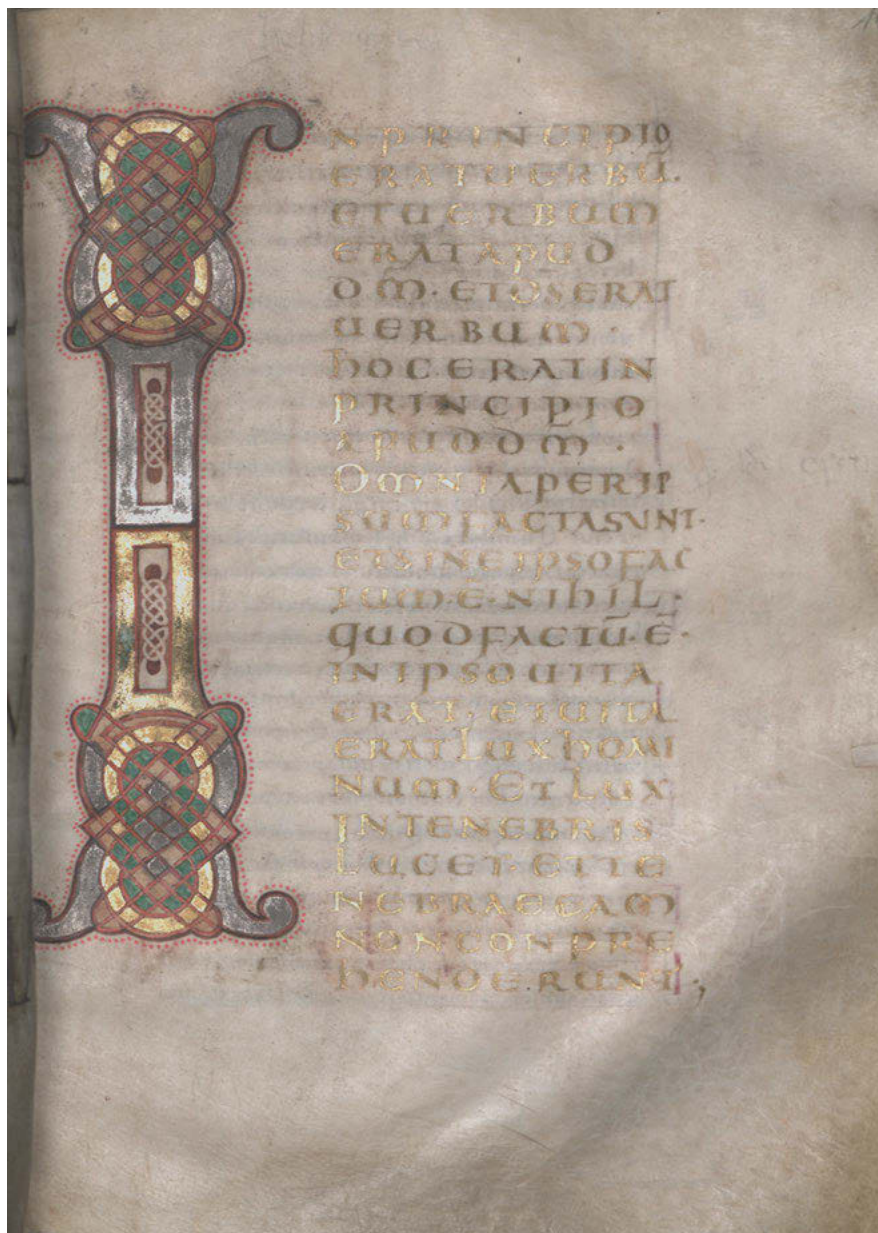 IN PRINCIPIO
ERAT UERBŪ.
ET UERBUM
ERAT APUD
DM̄. ET DS̄ ERAT
UERBUM.
HOC ERAT IN
PRINCIPIO
APUD DM̄.
OMNIA PER IP
SUM FACTA SUNT.
ET SINE IPSO FAC
TUM. Ē. NIHIL.
QUOD FACTŪ. Ē.
IN IPSO UITA
ERAT, ET UITA
ERAT LUX HOMI
NUM. ET LUX
IN TENEBRIS
LUCET. ET TE
NEBRAE EAM
NON CONPRE
HENDERUNT;